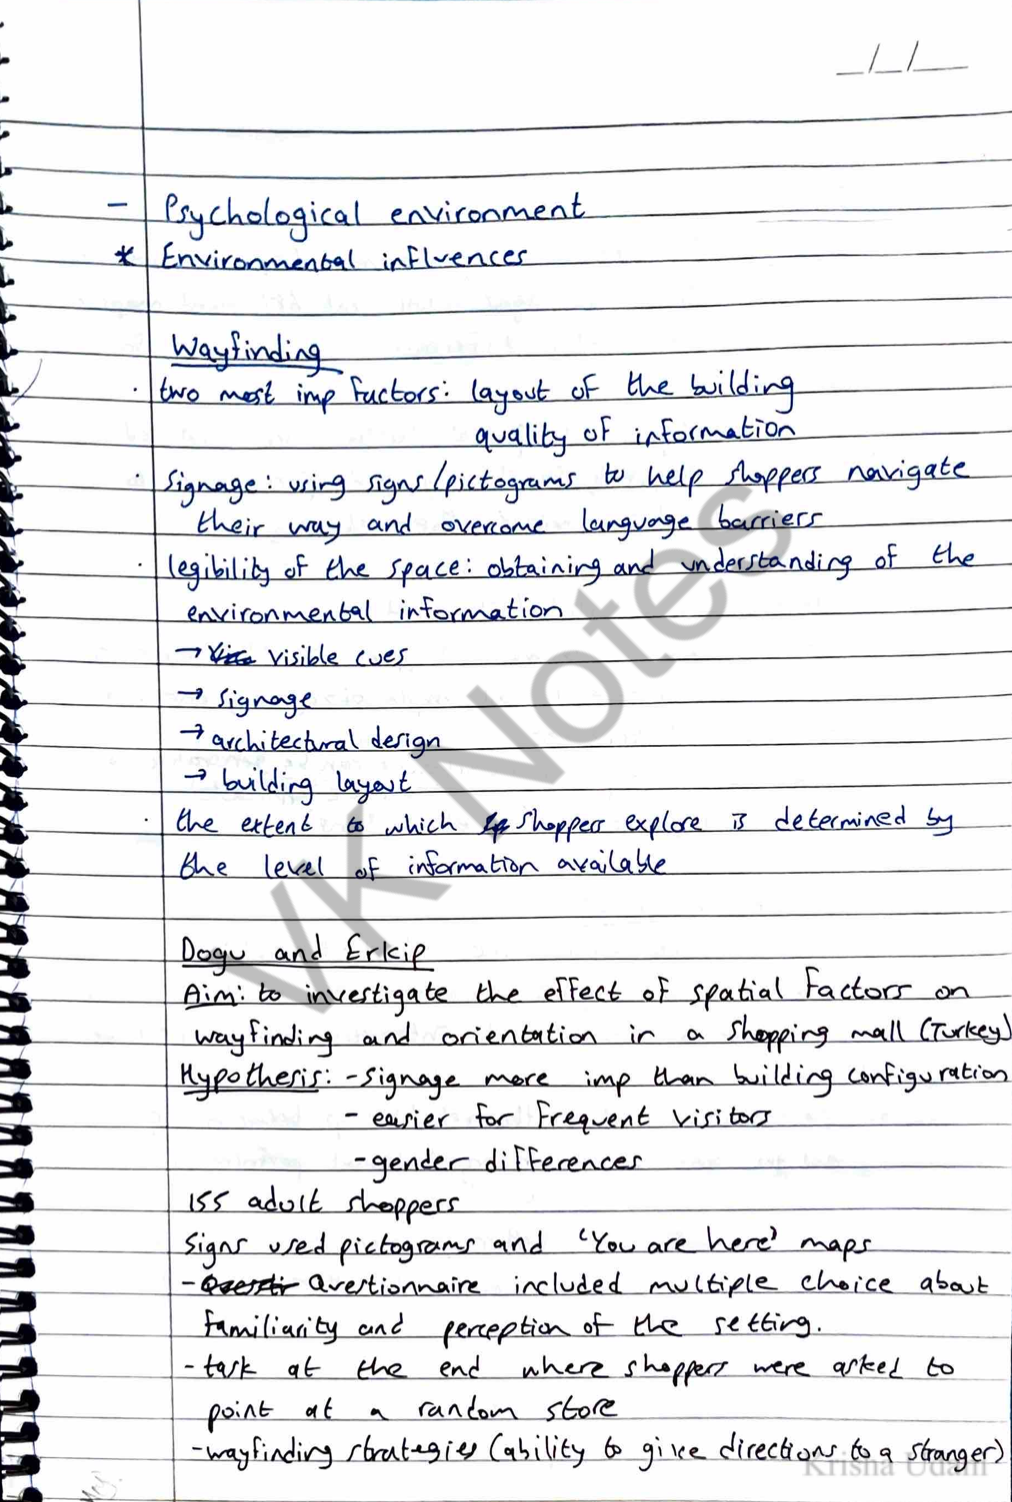 _/_/_
- Psychological environment
* Environmental influences
Wayfinding
· two most imp factors: layout of the building
quality of information
· Signage: using signs/pictograms to help shoppers navigate
their way and overcome language barriers
· legibility of the space: obtaining and understanding of the
environmental information
→ visible cues
→ signage
→ architectural design
→ building layout
· the extent to which shoppers explore is determined by
the level of information available
Dogu and Erkip
Aim: to investigate the effect of spatial factors on
wayfinding and orientation in a shopping mall (Turkey)
Hypothesis: - signage more imp than building configuration
- easier for frequent visitors
- gender differences
155 adult shoppers
Signs used pictograms and 'You are here' maps
- Questionnaire included multiple choice about
familiarity and perception of the setting.
- task at the end where shoppers were asked to
point at a random store
- wayfinding strategies (ability to give directions to a stranger)
VK Notes
Krisha Udani